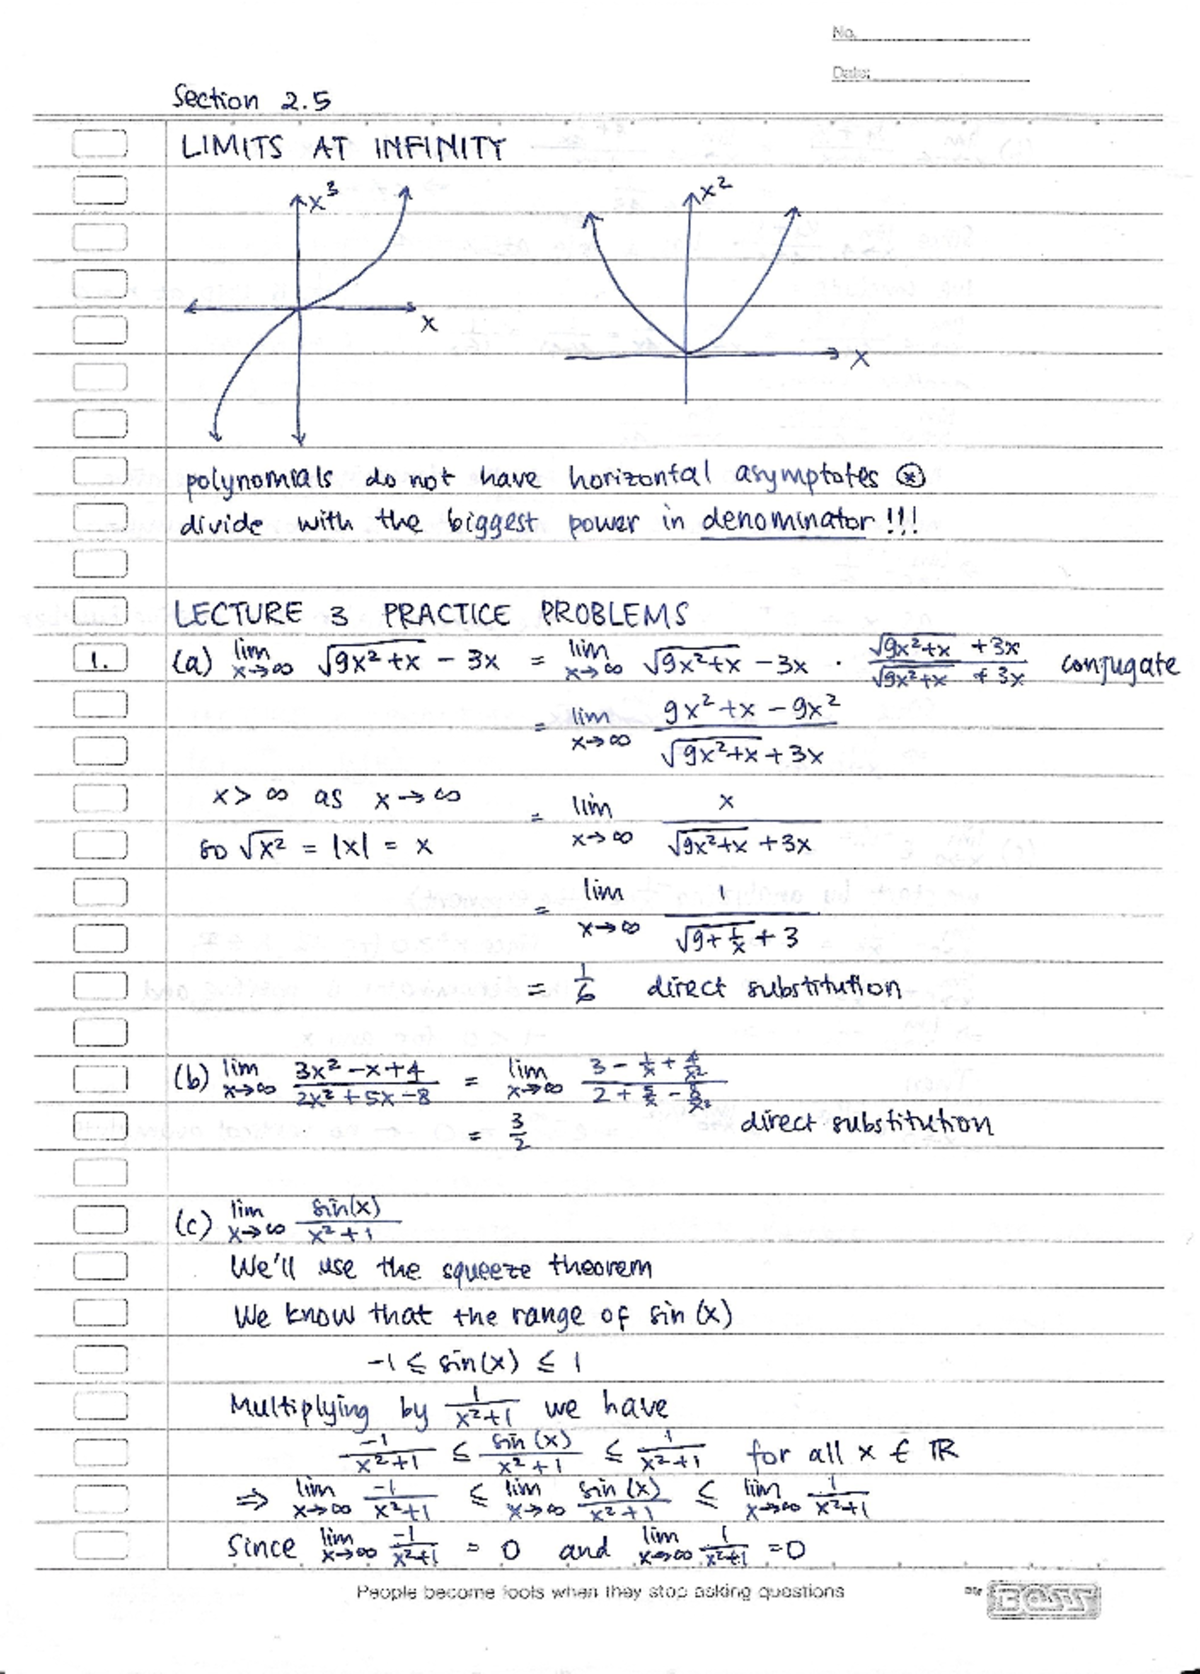 No.
Date:
Section 2.5
LIMITS AT INFINITY
x³ x²
x
x
polynomials do not have horizontal asymptotes ⊛
divide with the biggest power in denominator !!!
LECTURE 3 PRACTICE PROBLEMS
1. (a) lim x→∞ √(9x²+x) - 3x = lim x→∞ √(9x²+x) - 3x · (√(9x²+x) + 3x)/(√(9x²+x) + 3x) conjugate
= lim x→∞ (9x²+x - 9x²)/(√(9x²+x) + 3x)
x > ∞ as x→∞ = lim x→∞ x/(√(9x²+x) + 3x)
so √x² = |x| = x
= lim x→∞ 1/(√(9+1/x) + 3)
= 1/6 direct substitution
(b) lim x→∞ (3x² - x + 4)/(2x² + 5x - 8) = lim x→∞ (3 - 1/x + 4/x²)/(2 + 5/x - 8/x²)
= 3/2 direct substitution
(c) lim x→∞ sin(x)/(x² + 1)
We'll use the squeeze theorem
We know that the range of sin (x)
-1 ≤ sin(x) ≤ 1
Multiplying by 1/(x²+1) we have
-1/(x²+1) ≤ sin (x)/(x²+1) ≤ 1/(x²+1) for all x ∈ ℝ
⇒ lim x→∞ -1/(x²+1) ≤ lim x→∞ sin (x)/(x²+1) ≤ lim x→∞ 1/(x²+1)
Since lim x→∞ -1/(x²+1) = 0 and lim x→∞ 1/(x²+1) = 0
People become fools when they stop asking questions
BOSS